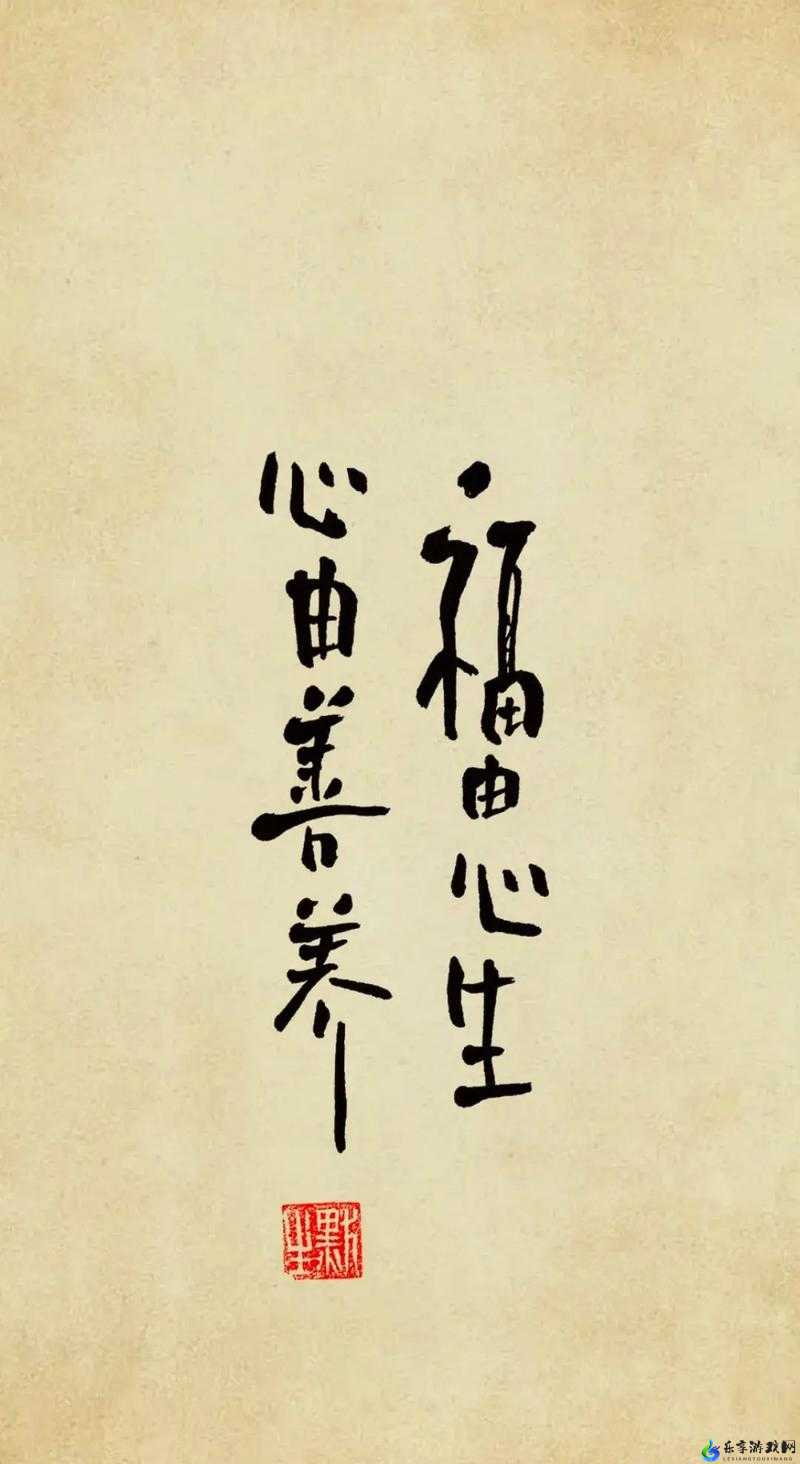 福由心生
心由善养
乐享游戏网
LEXIANGYOUXIWANG